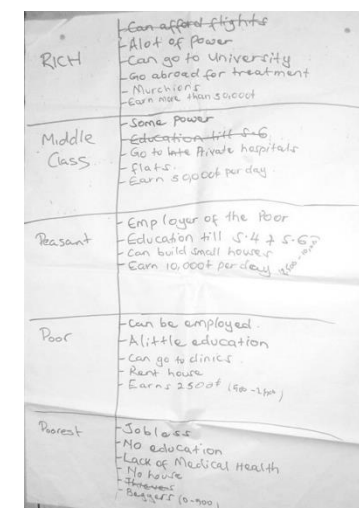 RICH
- Can afford flights
- Alot of power
- Can go to University
- Go abroad for treatment
- Murchions
- Earn more than 50,000t
Middle Class
- Some power
- Education till S.6
- Go to late Private hospitals
- flats.
- Earn 50,000t per day
Peasant
- Employer of the Poor
- Education till S.4 & S.6
- Can build small houses
- Earn 10,000t per day
Poor
- Can be employed.
- Alittle education
- Can go to clinics
- Rent house
- Earns 2500t
Poorest
- Jobless
- No education
- Lack of Medical Health
- No house
- Thieves
- Beggers (0-500)